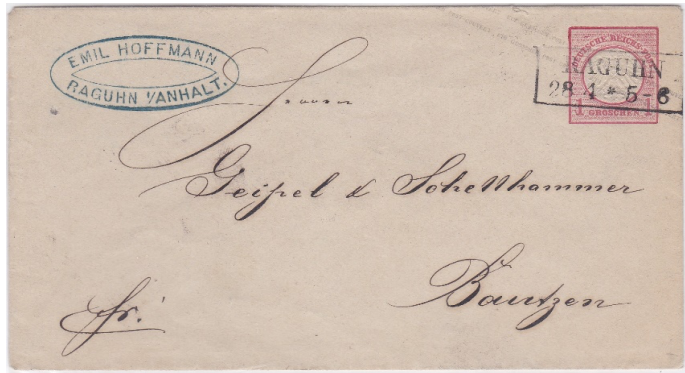 EMIL HOFFMANN
RAGUHN I/ANHALT.
DEUTSCHE REICHS-POST
RAGUHN
28 4 * 5-6
1 GROSCHEN 1
Herren
Geipel & Schellhammer
Bautzen
fr.